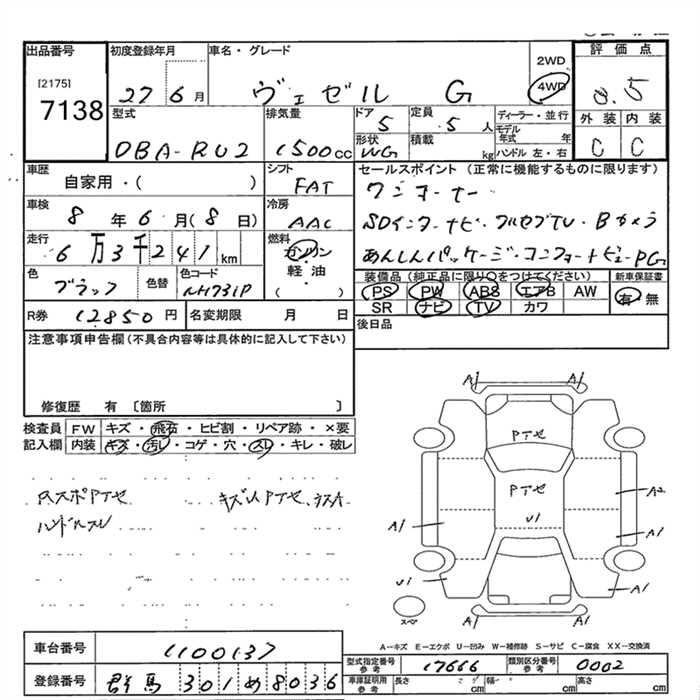 出品番号 初度登録年月 車名・グレード 2WD 評価点
[2175] 7138 27 6月 ヴェゼル G 4WD 4.5
型式 排気量 ドア 定員 ディーラー・並行 外装 内装
DBA-RU2 1500cc 5 5人 モデル年式 年 C C
形状 WG 積載 kg ハンドル 左・右
車歴 シフト セールスポイント (正常に機能するものに限ります)
自家用・( ) FAT ワンオーナー
車検 冷房
8年6月(8日) AAC SDインターナビ・フルセグTV・Bカメラ
走行 燃料
6万3千241km ガソリン・軽油 ( ) あんしんパッケージ・コンフォートビューPG
色 色替 色コード 装備品 (純正品に限り○をつけてください) 新車保証書
ブラック NH731P PS PW ABS エアB AW 有 無
SR ナビ TV カワ
R券 12850円 名変期限 月 日 後日品
注意事項申告欄 (不具合内容等は具体的に記入して下さい)
修復歴 有 〔箇所 〕
検査員記入欄 FW キズ・飛石・ヒビ割・リペア跡・×要
内装 キズ・汚レ・コゲ・穴・スレ・キレ・破レ
RスポPTセ キズUPTセ、ラスA
ハンドルスレ
A1 A1
PTセ
PTセ A2
A1 U1 A1
U1 A1
スペア A1 A1
A-キズ E-エクボ U-凹み W-補修跡 S-サビ C-腐食 XX-交換済
車台番号 1100137
型式指定番号 参考 17666 類別区分番号 参考 0002
登録番号 群馬 301 め 8036 車庫証明用 参考 長さ cm 幅 cm 高さ cm